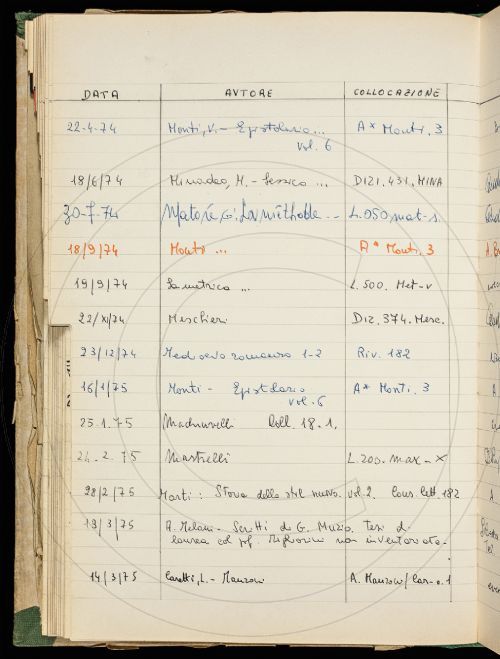 DATA AUTORE COLLOCAZIONE
22-4-74 Monti, V. - Epistolario ... A* Monti. 3
vol. 6
18/6/74 Minadeo, M. - Lessico ... DIZI. 431. MINA
30-7-74 Matoré, G. La méthode ... L.050 mat-1.
18/9/74 Monti ... A* Monti. 3
19/9/74 La metrica ... L.500. Met-v
22/XI/74 Meschieri DIZ. 374. Mesc.
23/12/74 Medioevo romanzo 1-2 Riv. 182
16/1/75 Monti - Epistolario A* Monti. 3
vol. 6
25.1.75 Coll. 18.1.
24.2.75 Mastrelli L.200. max - X
28/2/75 Marti: Storia dello stil nuovo. vol 2. Coll. lett. 182
13/3/75 A. Milani - Scritti di G. Muzio. Tesi di
laurea col prof. non inventariata.
14/3/75 Caretti, L. - Manzoni A. Manzoni/Car-o.1